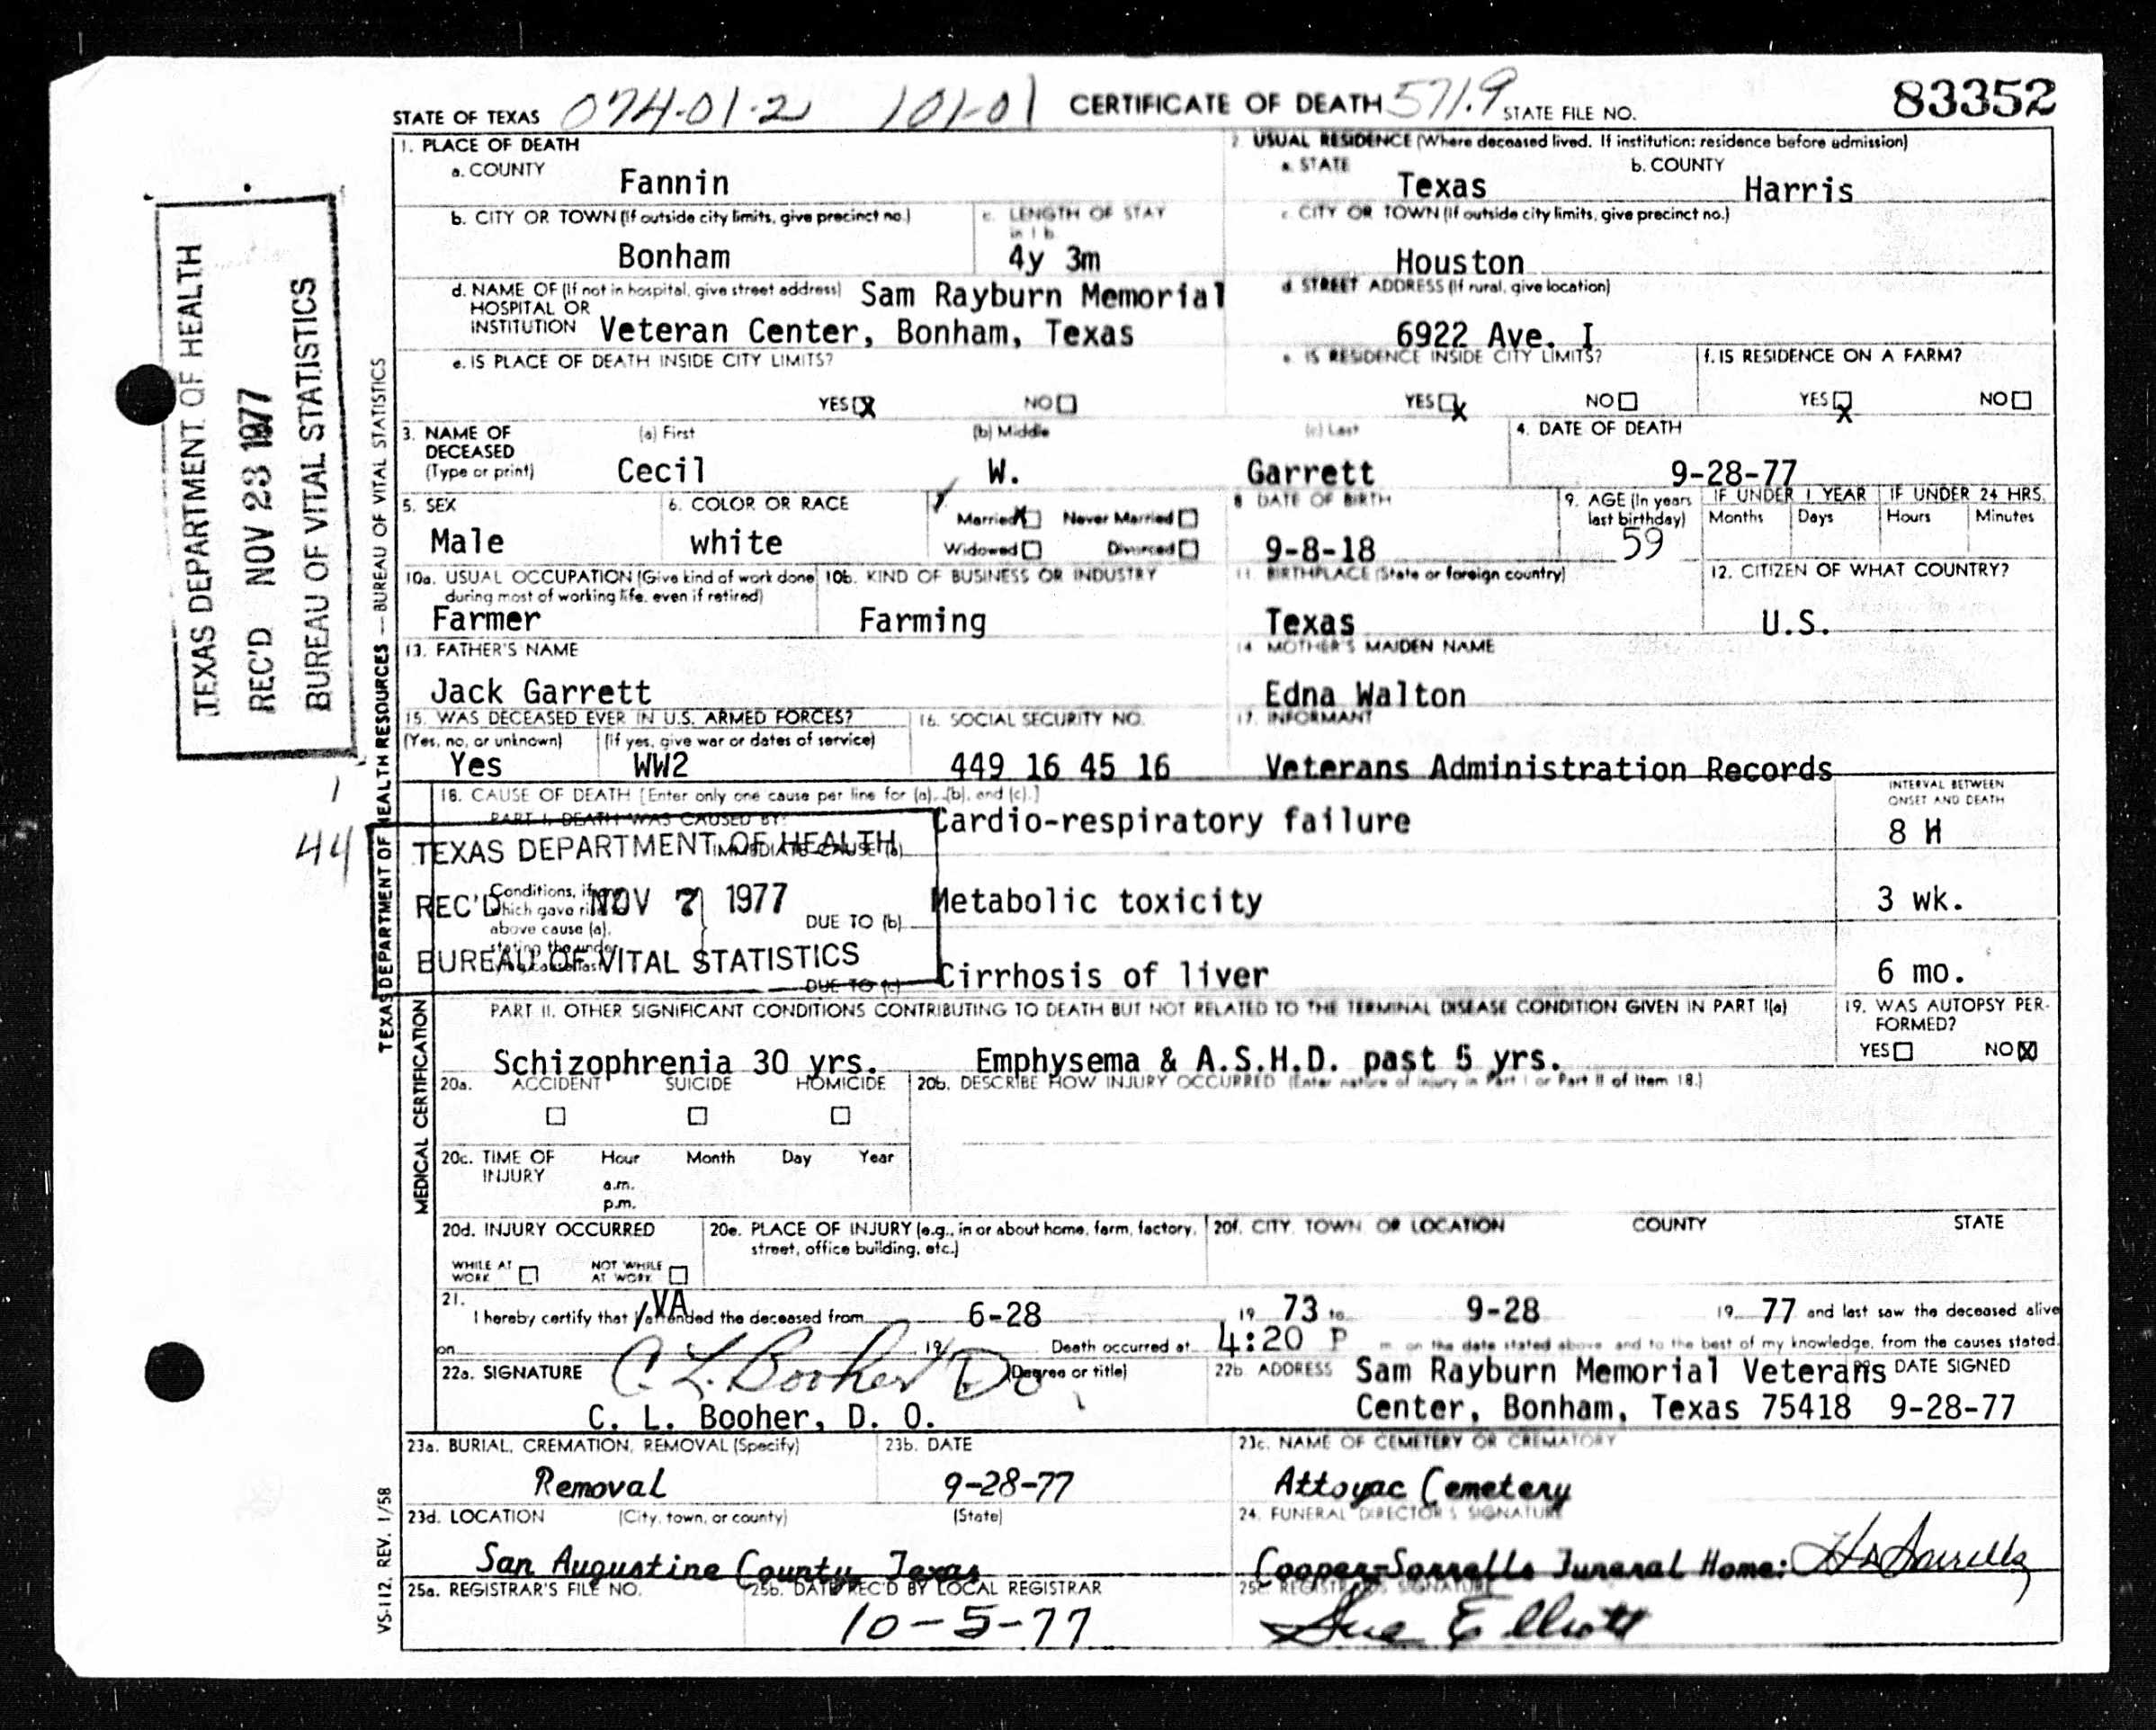 STATE OF TEXAS 074-01-2 101-01 CERTIFICATE OF DEATH 571.9 STATE FILE NO. 83352
1. PLACE OF DEATH
a. COUNTY
Fannin
2. USUAL RESIDENCE (Where deceased lived. If institution: residence before admission)
a. STATE
Texas
b. COUNTY
Harris
b. CITY OR TOWN (If outside city limits, give precinct no.)
Bonham
c. LENGTH OF STAY
in 1 b
4y 3m
c. CITY OR TOWN (If outside city limits, give precinct no.)
Houston
d. NAME OF (If not in hospital, give street address)
HOSPITAL OR
INSTITUTION
Sam Rayburn Memorial
Veteran Center, Bonham, Texas
d. STREET ADDRESS (If rural, give location)
6922 Ave. I
e. IS PLACE OF DEATH INSIDE CITY LIMITS?
YES X NO
e. IS RESIDENCE INSIDE CITY LIMITS?
YES X NO
f. IS RESIDENCE ON A FARM?
YES X NO
3. NAME OF
DECEASED
(Type or print)
(a) First
Cecil
(b) Middle
W.
(c) Last
Garrett
4. DATE OF DEATH
9-28-77
5. SEX
Male
6. COLOR OR RACE
white
7.
Married X Never Married
Widowed Divorced
8. DATE OF BIRTH
9-8-18
9. AGE (In years
last birthday)
59
IF UNDER 1 YEAR
Months Days
IF UNDER 24 HRS.
Hours Minutes
10a. USUAL OCCUPATION (Give kind of work done
during most of working life, even if retired)
Farmer
10b. KIND OF BUSINESS OR INDUSTRY
Farming
11. BIRTHPLACE (State or foreign country)
Texas
12. CITIZEN OF WHAT COUNTRY?
U.S.
13. FATHER'S NAME
Jack Garrett
14. MOTHER'S MAIDEN NAME
Edna Walton
15. WAS DECEASED EVER IN U.S. ARMED FORCES?
(Yes, no, or unknown) (If yes, give war or dates of service)
Yes WW2
16. SOCIAL SECURITY NO.
449 16 45 16
17. INFORMANT
Veterans Administration Records
18. CAUSE OF DEATH [Enter only one cause per line for (a), (b), and (c).]
PART I. DEATH WAS CAUSED BY:
IMMEDIATE CAUSE (a)
Cardio-respiratory failure
INTERVAL BETWEEN
ONSET AND DEATH
8 H
DUE TO (b)
Metabolic toxicity
3 wk.
DUE TO (c)
Cirrhosis of liver
6 mo.
TEXAS DEPARTMENT OF HEALTH
REC'D NOV 7 1977
BUREAU OF VITAL STATISTICS
PART II. OTHER SIGNIFICANT CONDITIONS CONTRIBUTING TO DEATH BUT NOT RELATED TO THE TERMINAL DISEASE CONDITION GIVEN IN PART I(a)
Schizophrenia 30 yrs. Emphysema & A.S.H.D. past 5 yrs.
19. WAS AUTOPSY PER-
FORMED?
YES NO X
20a. ACCIDENT SUICIDE HOMICIDE
20b. DESCRIBE HOW INJURY OCCURRED (Enter nature of injury in Part I or Part II of Item 18.)
20c. TIME OF
INJURY
Hour Month Day Year
a.m.
p.m.
20d. INJURY OCCURRED
WHILE AT
WORK
NOT WHILE
AT WORK
20e. PLACE OF INJURY (e.g., in or about home, farm, factory,
street, office building, etc.)
20f. CITY, TOWN, OR LOCATION COUNTY STATE
21.
I hereby certify that I VA attended the deceased from 6-28 19 73 to 9-28 19 77 and last saw the deceased alive
on 19 Death occurred at 4:20 P m. on the date stated above and to the best of my knowledge, from the causes stated.
22a. SIGNATURE C. L. Booher DO (Degree or title)
C. L. Booher, D. O.
22b. ADDRESS Sam Rayburn Memorial Veterans
Center, Bonham, Texas 75418
DATE SIGNED
9-28-77
23a. BURIAL, CREMATION, REMOVAL (Specify)
Removal
23b. DATE
9-28-77
23c. NAME OF CEMETERY OR CREMATORY
Attoyac Cemetery
23d. LOCATION (City, town, or county) (State)
San Augustine County, Texas
24. FUNERAL DIRECTOR'S SIGNATURE
Cooper-Sorrells Funeral Home:
25a. REGISTRAR'S FILE NO.
25b. DATE REC'D BY LOCAL REGISTRAR
10-5-77
25c. REGISTRAR'S SIGNATURE
Sue Elliott
TEXAS DEPARTMENT OF HEALTH
REC'D NOV 23 1977
BUREAU OF VITAL STATISTICS
1
44
TEXAS DEPARTMENT OF HEALTH RESOURCES — BUREAU OF VITAL STATISTICS
MEDICAL CERTIFICATION
VS-112, REV. 1/58